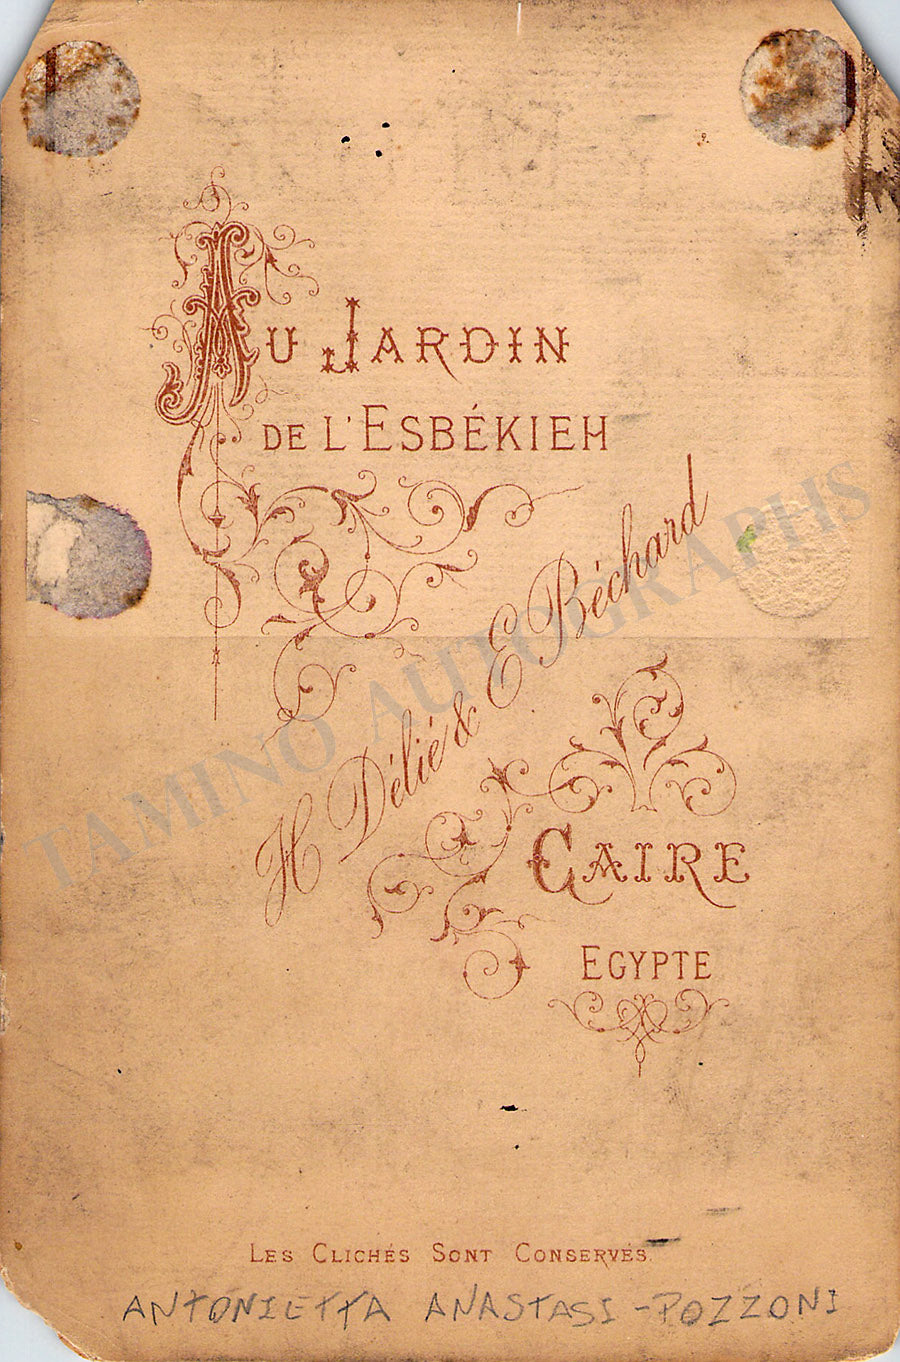 Au Jardin
de l'Esbékieh
H Délié & E Béchard
Caire
Egypte
Les Clichés Sont Conservés
ANTONIETTA ANASTASI-POZZONI
TAMINO AUTOGRAPHS